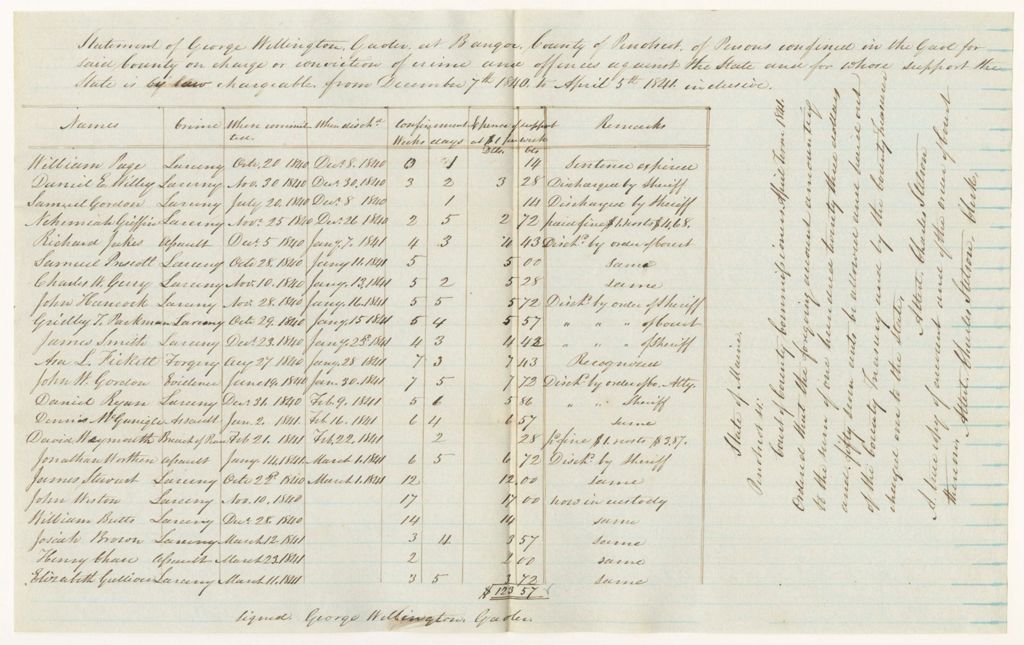 Statement of George Wellington, Gaoler, at Bangor, County of Penobscot, of Persons confined in the Gaol for
said County on charge or conviction of crime and offences against the State and for whose support the
State is by law chargeable, from December 7th 1840, to April 5th 1841 inclusive.
Names Crime When commit- When disch.d Confinement Expence of support Remarks
ted Weeks days at $1 per week
Dolls. Cts
William Page Larceny Octr. 20 1840 Decr. 8. 1840 0 1 14 Sentence expired
Daniel E. Willey Larceny Nov. 30 1840 Decr. 30, 1840 3 2 3 28 Discharged by Sheriff
Samuel Gordon Larceny July 20, 1840 Decr. 8 1840 1 14 Discharged by Sheriff
Nehemiah Griffin Larceny Novr. 25 1840 Decr. 26 1840 2 5 2 72 paid fine $1. & costs $4,68.
Richard Jukes Assault Decr. 5 1840 Jany. 7. 1841 4 3 4 43 Disch.d by order of Court
Samuel Prescott Larceny Octr. 28. 1840 Jany 11. 1841 5 5 00 same
Charles H. Gerry Larceny Novr. 10. 1840 Jany. 13. 1841 5 2 5 28 same
John Hancock Larceny Nov. 28. 1840 Jany. 16. 1841 5 5 5 72 Disch.d by order of Sheriff
Gridley T. Parkman Larceny Octr. 29. 1840 Jany. 15 1841 5 4 5 57 " " " of Court
James Smith Larceny Decr. 23. 1840 Jany 7. 1841 4 3 4 42 " " " of Sheriff
Asa L. Fickett Forgery Aug 27 1840 Jany. 28 1841 7 3 7 43 Recognized
John W. Gordon Evidence June 19. 1840 Jan. 30. 1841 7 5 7 72 Disch.d by order of Co. Atty.
Daniel Ryan Larceny Decr. 31. 1840 Feb. 9. 1841 5 6 5 86 " " Sheriff
Dennis McGunigle Assault Jan. 2. 1841 Feb 16. 1841 6 4 6 57 same
David Waymouth Breach of Peace Feb 21. 1841 Feb. 22. 1841 2 28 pd fine $1. & costs $3,87.
Jonathan Worthen Assault Jany. 14. 1841 March 1. 1841 6 5 6 72 Disch.d by Sheriff
James Stewart Larceny Octr 22d 1840 March 1. 1841 12 12 00 same
John Weston Larceny Nov. 10. 1840 17 17 00 now in custody
William Butts Larceny Decr. 28. 1840 14 14 same
Josiah Brown Larceny March 12. 1841 3 4 3 57 same
Henry Chase Assault March 23. 1841 2 2 00 same
Elizabeth Gullivan Larceny March 11. 1841 3 5 3 72 same
$ 123 57
Signed. George Wellington, Gaoler.
State of Maine.
Penobscot ss.
Court of County Commissioners April Term 1841.
Ordered that the foregoing account amounting
to the sum of one hundred twenty three dollars
and fifty seven cents be allowed and paid out
of the County Treasury and by the County Treasurer
charged over to the State.
Attest. Charles Stetson Clerk.
A true copy of account and of the order of Court
thereon. Attest. Charles Stetson Clerk.